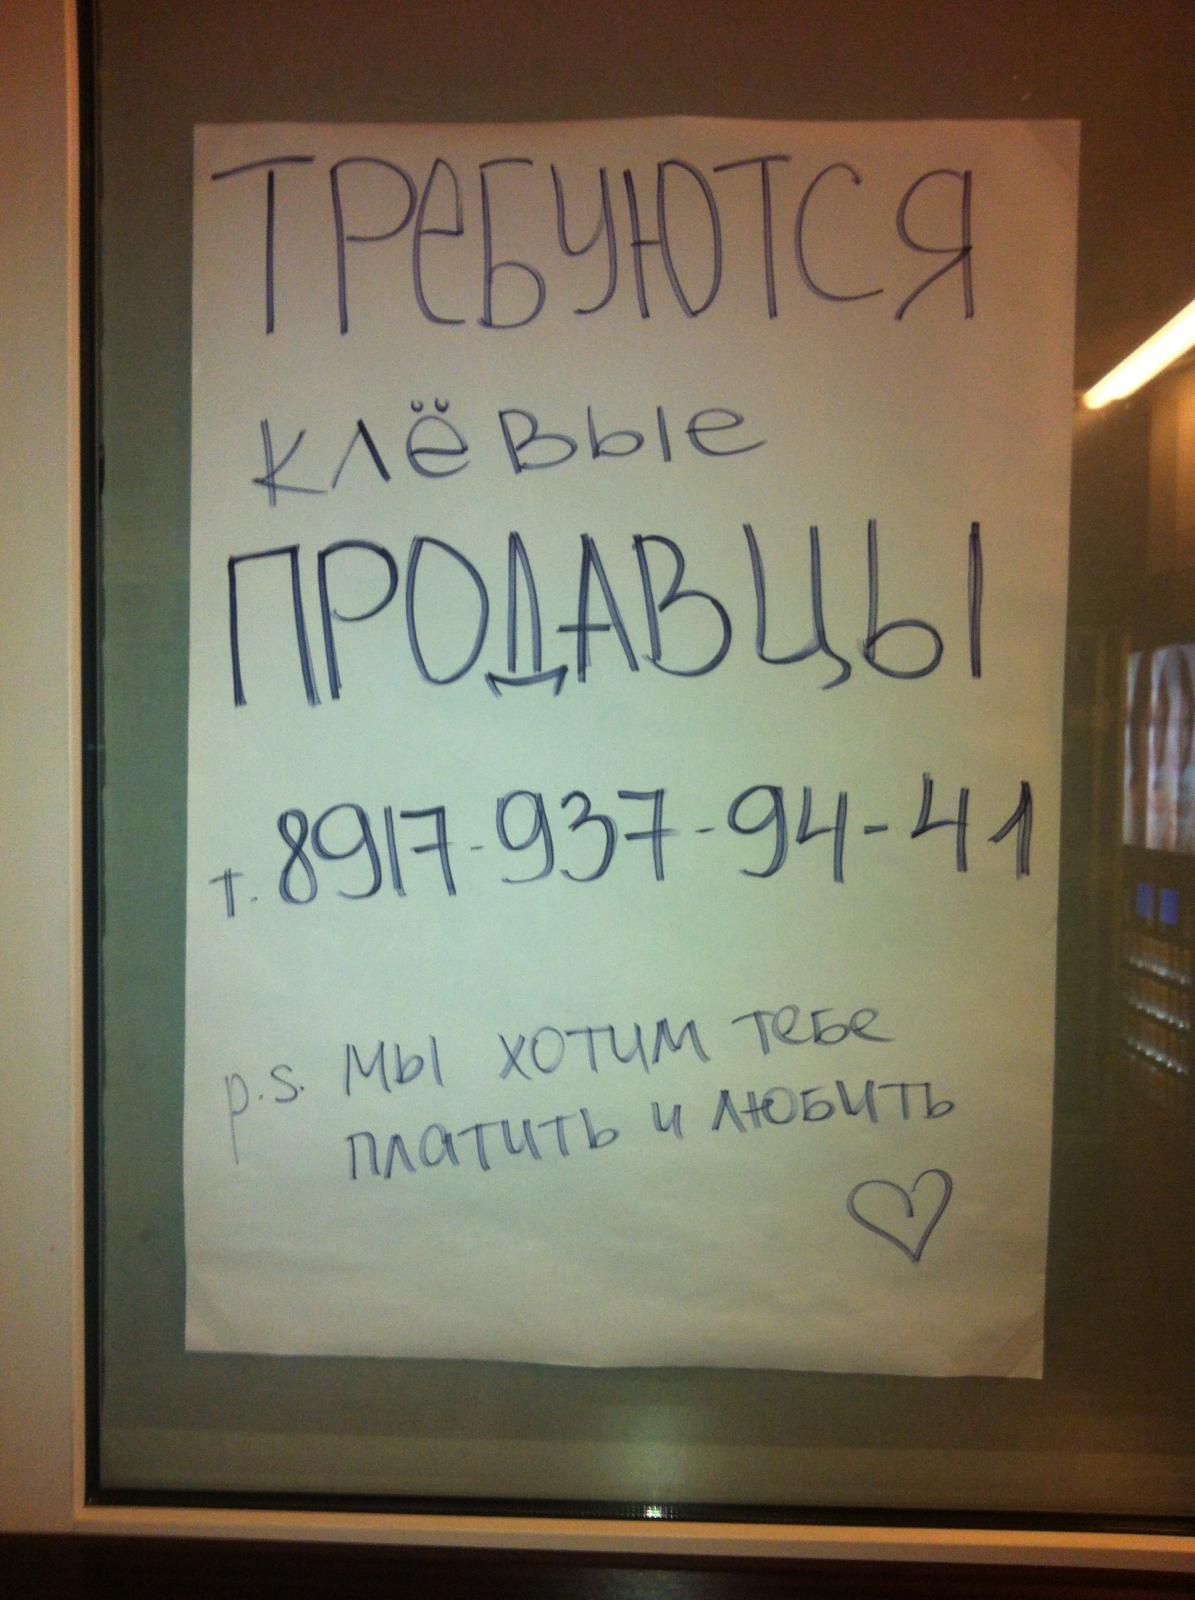 ТРЕБУЮТСЯ
клёвые
ПРОДАВЦЫ
т. 8917-937-94-41
p.s. мы хотим тебе
платить и любить